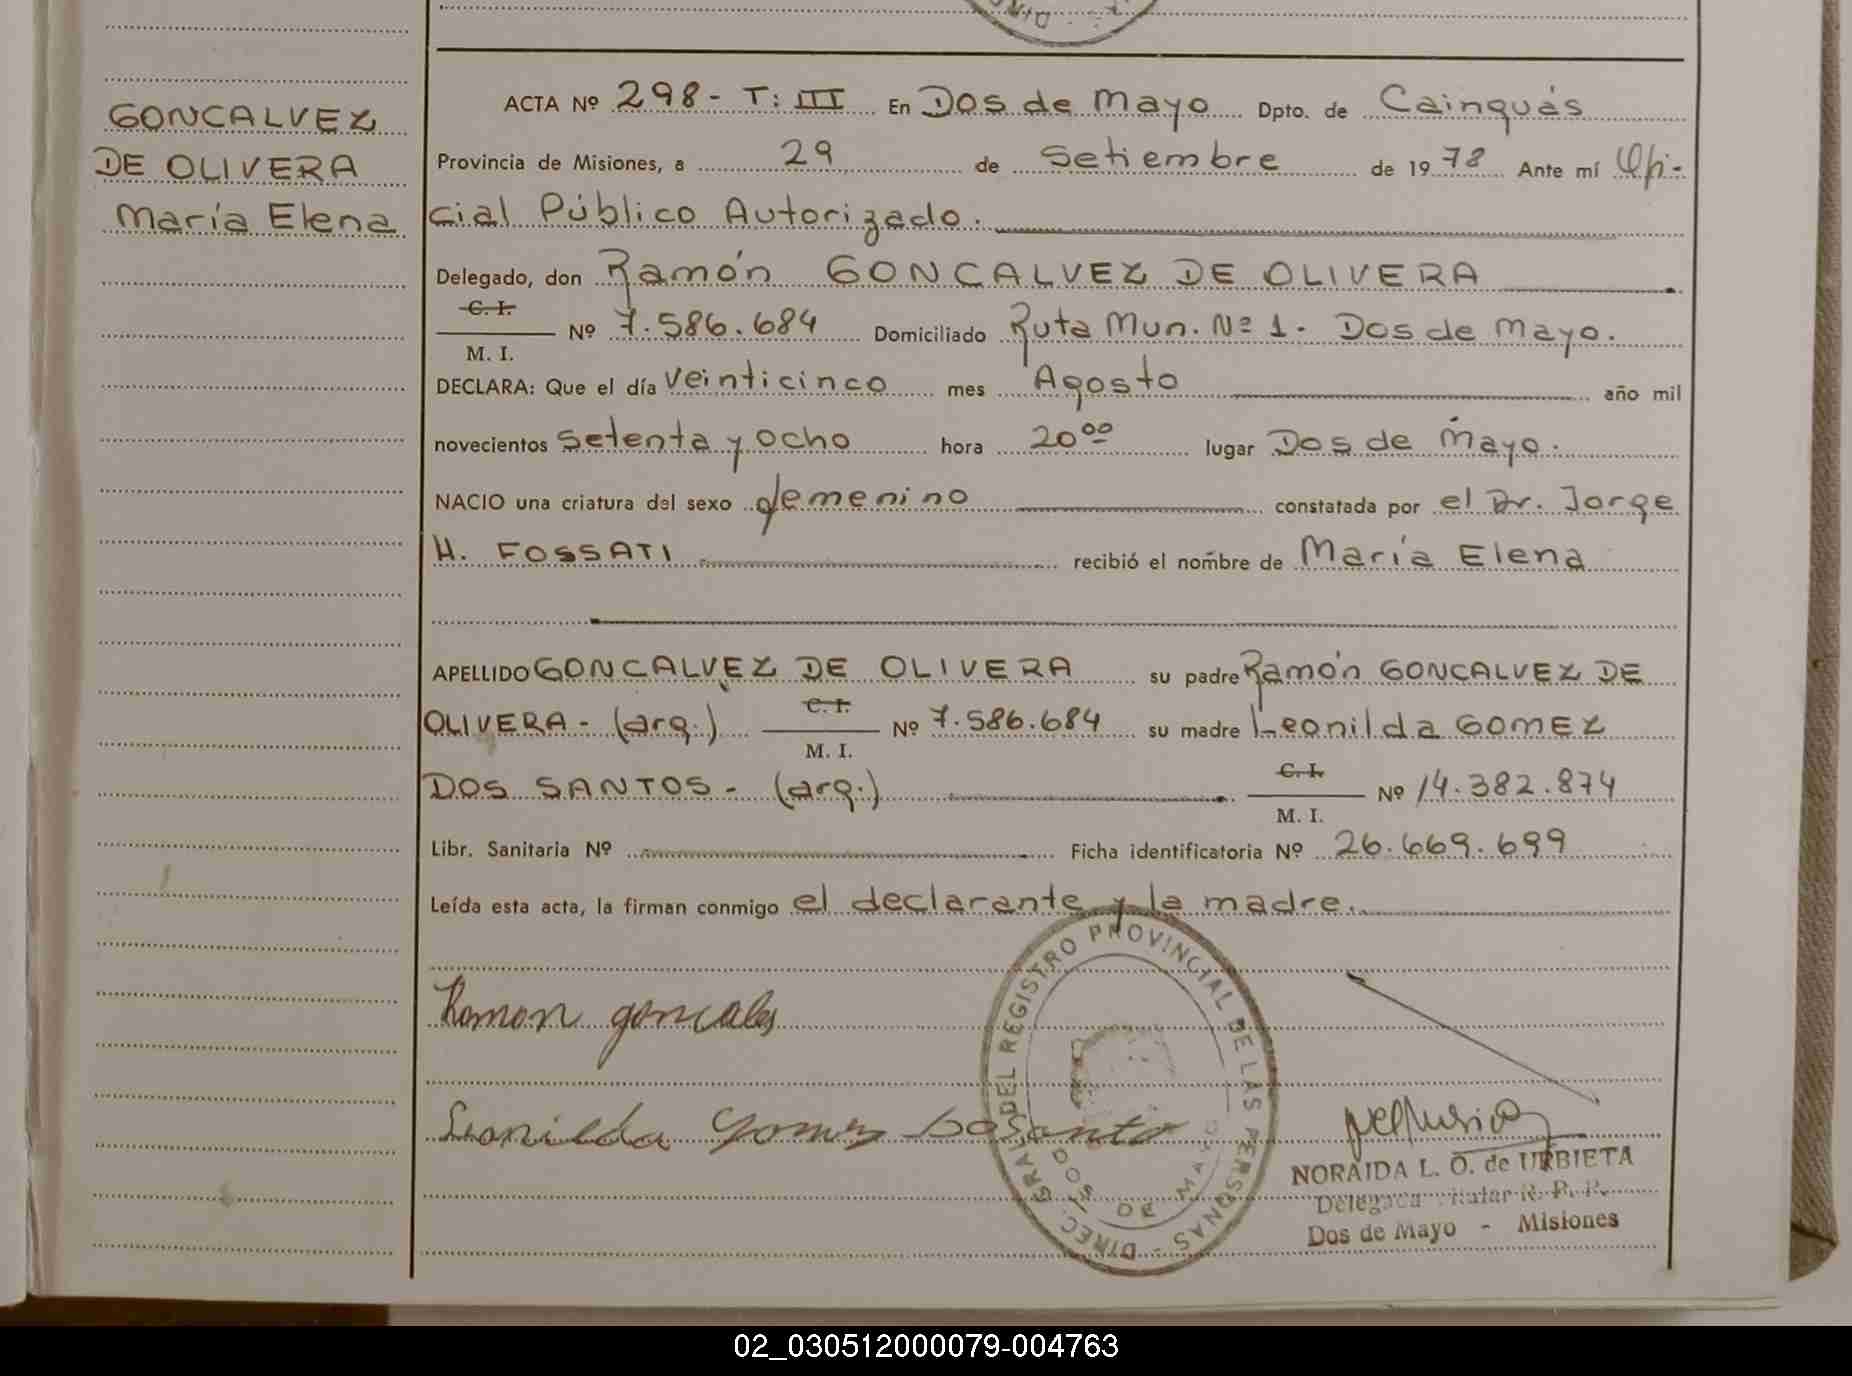 GONCALVEZ
DE OLIVERA
María Elena
ACTA Nº 298- T: III En Dos de Mayo Dpto. de Cainguás
Provincia de Misiones, a 29 de Setiembre de 1978 Ante mí Ofi-
cial Público Autorizado.
Delegado, don Ramón GONCALVEZ DE OLIVERA
C. I.
M. I. Nº 7.586.684 Domiciliado Ruta Mun. Nº 1. Dos de Mayo.
DECLARA: Que el día veinticinco mes Agosto año mil
novecientos setenta y ocho hora 20⁰⁰ lugar Dos de Mayo.
NACIO una criatura del sexo femenino constatada por el Dr. Jorge
H. FOSSATI recibió el nombre de María Elena
APELLIDO GONCALVEZ DE OLIVERA su padre Ramón GONCALVEZ DE
OLIVERA- (arg.) C. I. M. I. Nº 7.586.684 su madre Leonilda GOMEZ
DOS SANTOS- (arg.) C. I. M. I. Nº 14.382.874
Libr. Sanitaria Nº Ficha identificatoria Nº 26.669.699
Leída esta acta, la firman conmigo el declarante y la madre.
Ramon goncales
Leonilda Gomes do Santo
DIREC. GRAL. DEL REGISTRO PROVINCIAL DE LAS PERSONAS -
DOS DE MAYO
NORAIDA L. O. de URBIETA
Delegada Titular R. P. P.
Dos de Mayo - Misiones
02_030512000079-004763